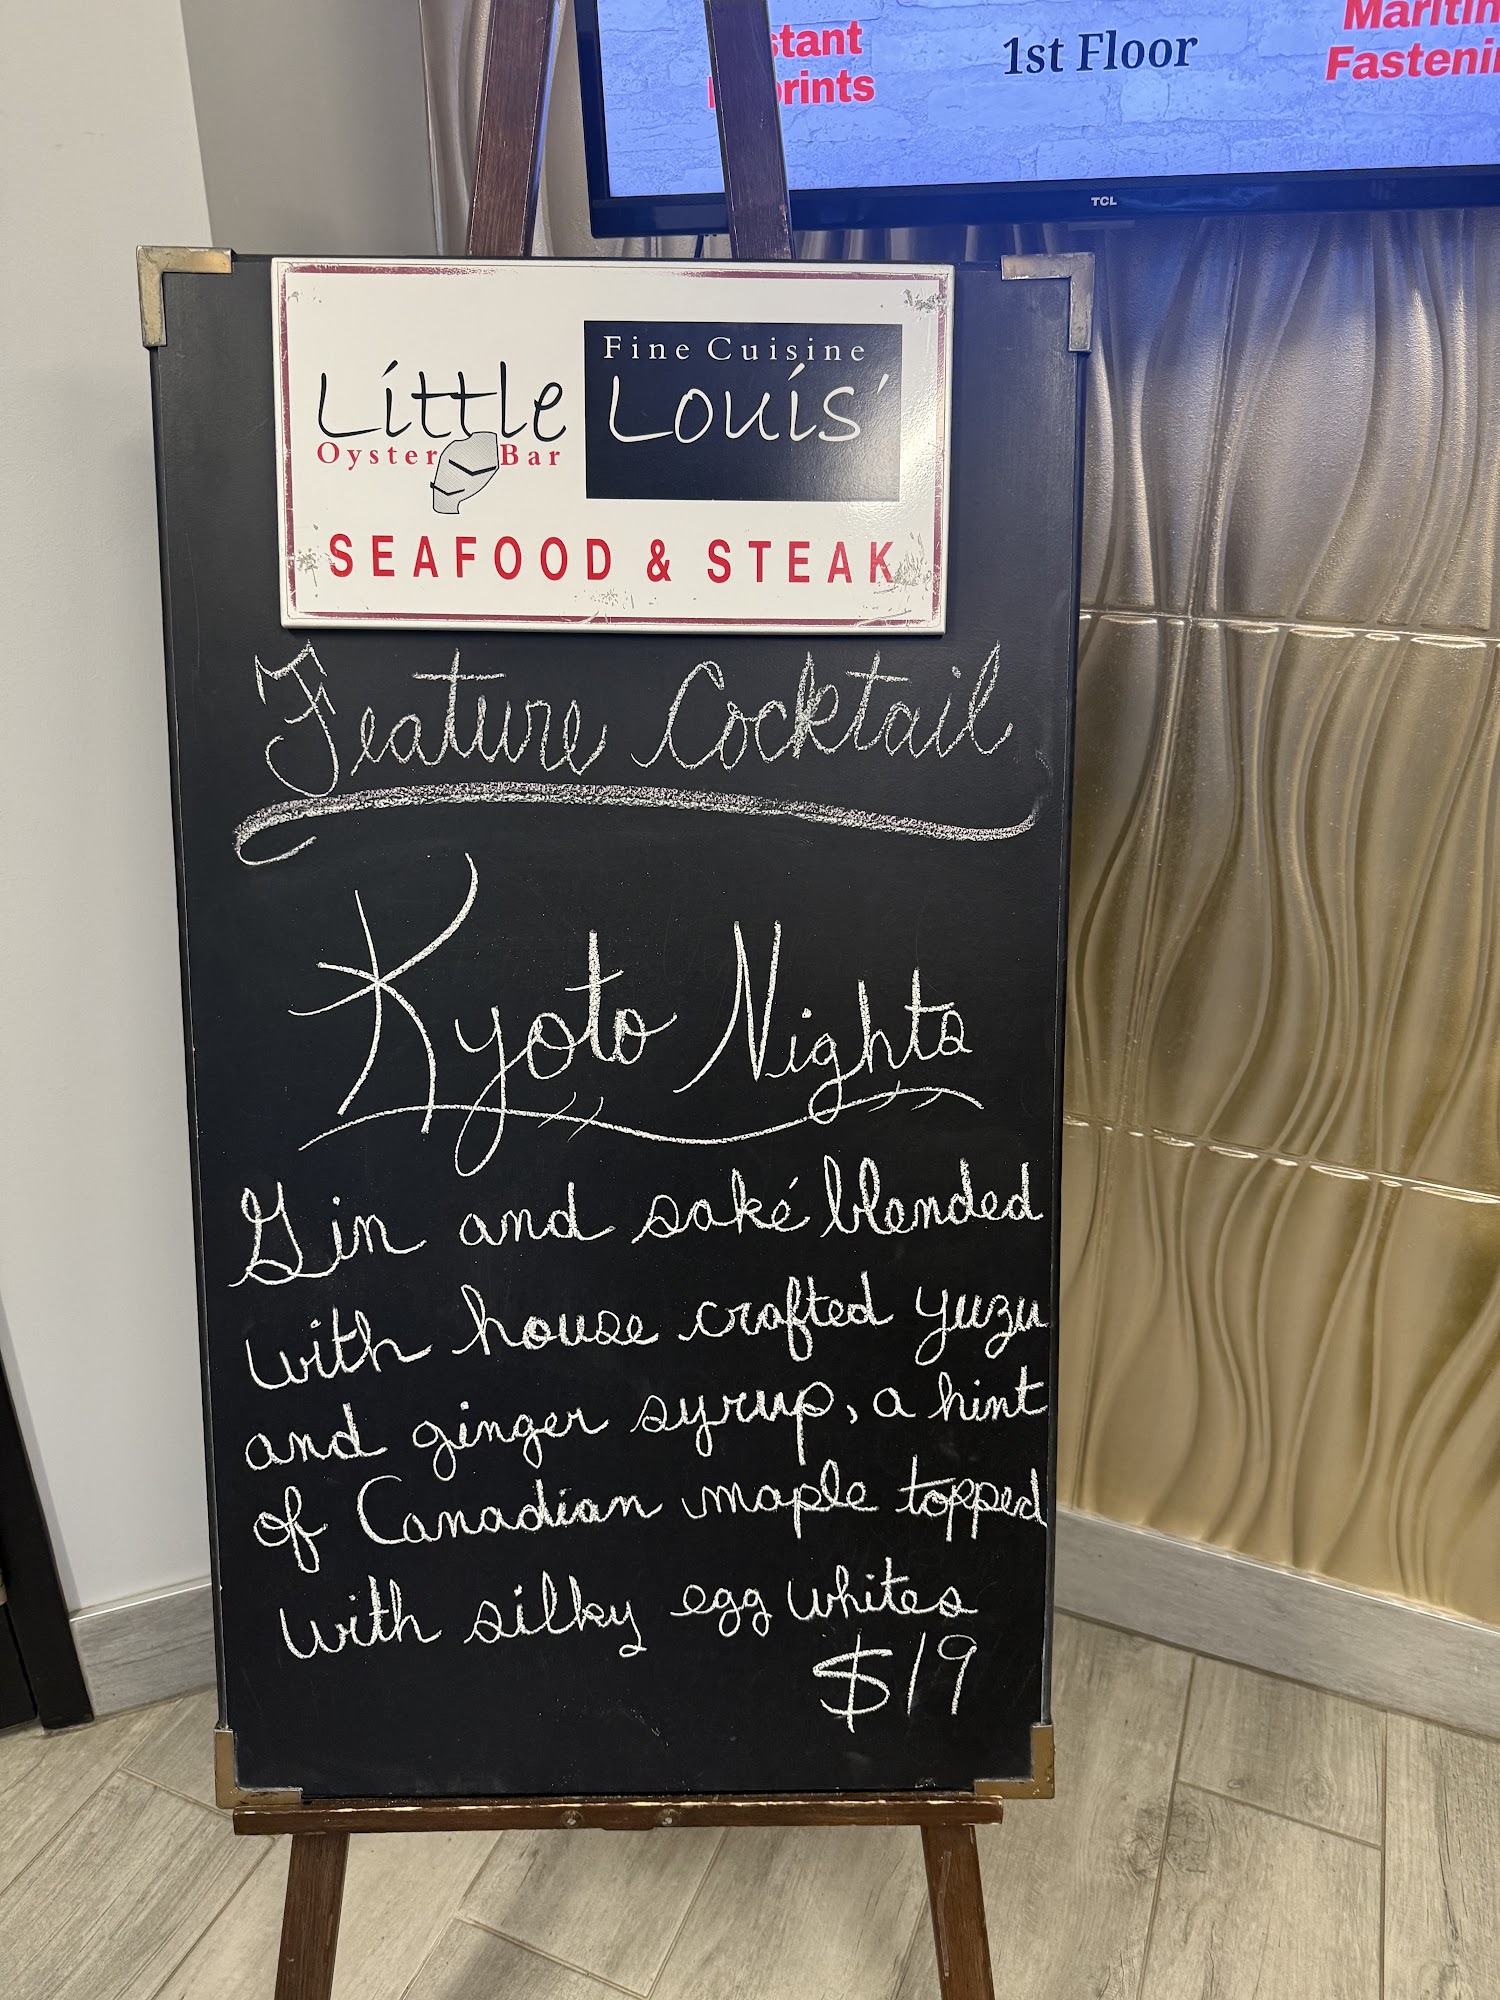 1st Floor
TCL
Little
Oyster Bar
Fine Cuisine
Louis'
SEAFOOD & STEAK
Feature Cocktail
Kyoto Nights
Gin and saké blended
with house crafted yuzu
and ginger syrup, a hint
of Canadian maple topped
with silky egg whites
$19